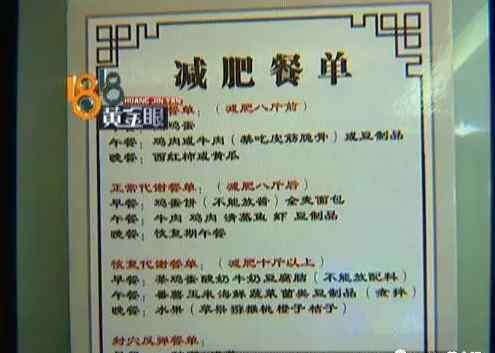 减肥餐单
1818
HUANG JIN YAN
黄金眼
餐单：（减肥八斤前）
鸡蛋
午餐：鸡肉或牛肉（禁吃皮筋脆骨）或豆制品
晚餐：西红柿或黄瓜
正常代谢餐单：（减肥八斤后）
早餐：鸡蛋饼（不能放酱）全麦面包
午餐：牛肉 鸡肉 清蒸鱼 虾 豆制品
晚餐：恢复期午餐
恢复代谢餐单：（减肥十斤以上）
早餐：茶鸡蛋酸奶牛奶豆腐脑（不能放配料）
午餐：番薯玉米海鲜蔬菜菌类豆制品（煮拌）
晚餐：水果（苹果猕猴桃橙子桔子）
封穴反弹餐单：
早餐：